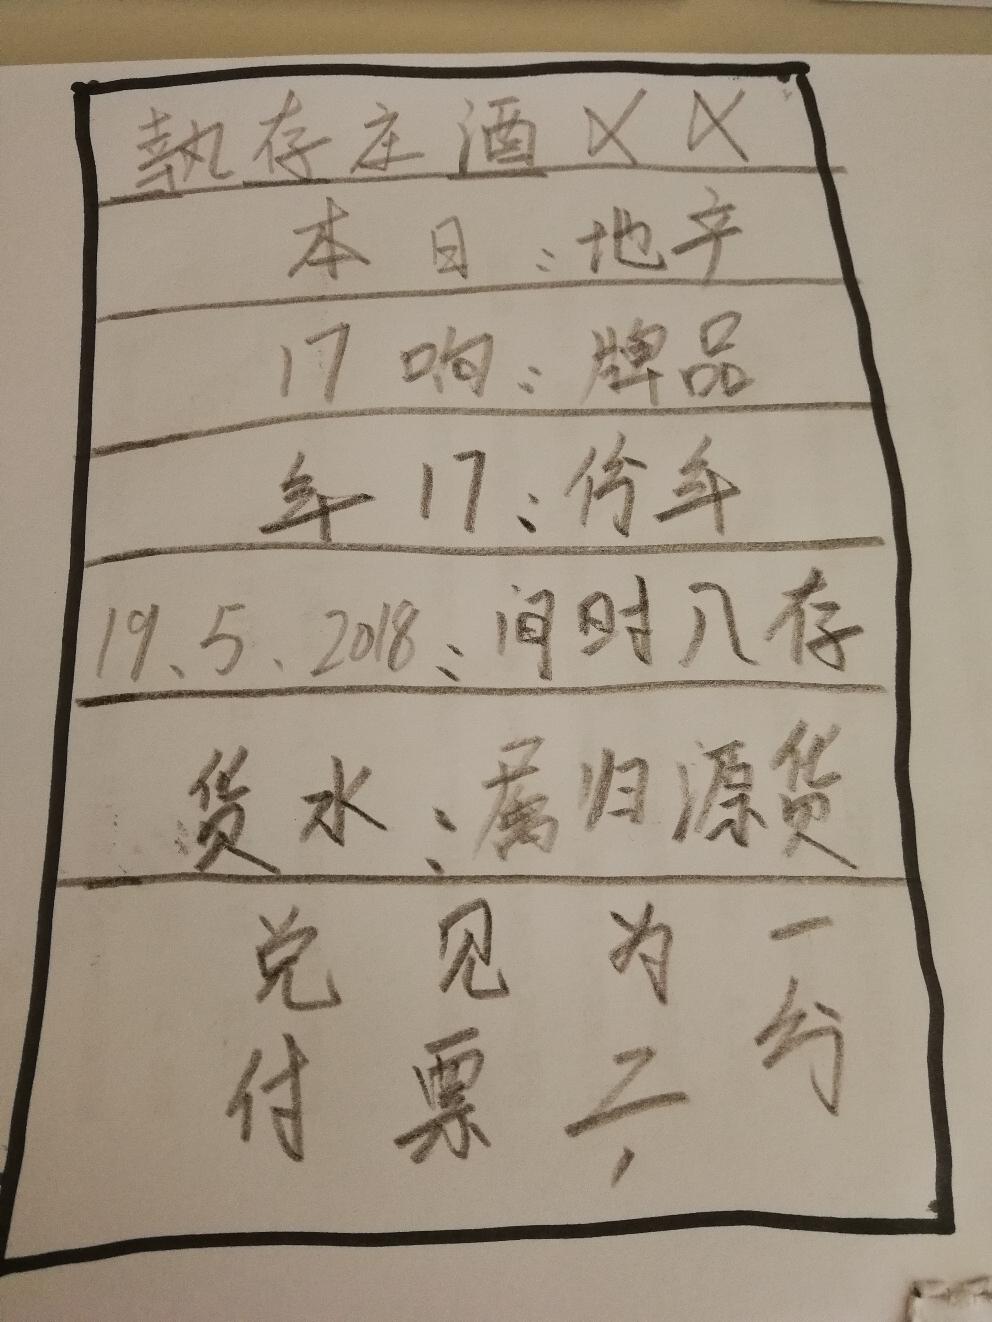 ××酒庄存執
产地：日本
品牌：响17
年份：17年
存入时间：2018、5、19
货源归属：水货
一分
为二，
见票
兑付